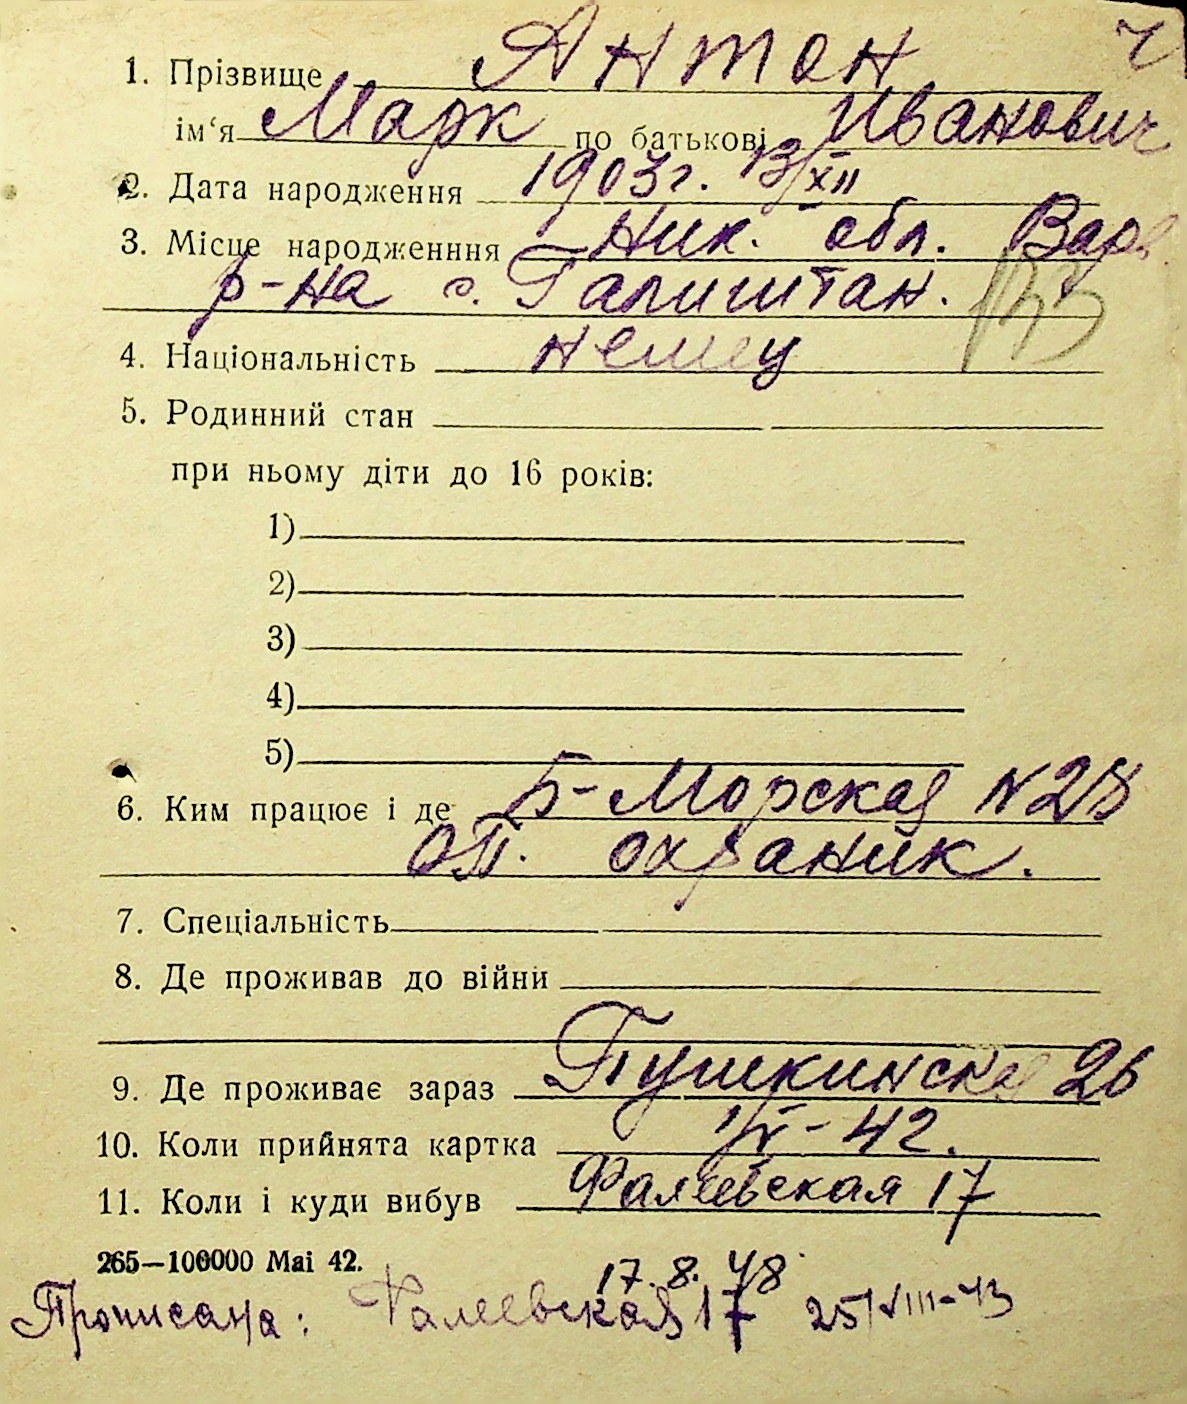 1. Прізвище Антон
ім‘я Марк по батькові Иванович
2. Дата народження 1903г. 13/XII
3. Місце народженння Ник. обл. Варв
р-на с. Галиштан.
4. Національність немец
5. Родинний стан
при ньому діти до 16 років:
1)
2)
3)
4)
5)
6. Ким працює і де Б-Морская N 28
ОТ. охраник.
7. Спеціальність
8. Де проживав до війни
9. Де проживає зараз Пушкинская 26
10. Коли прийнята картка -42.
11. Коли і куди вибув Фалеевская 17
265—100000 Mai 42.
17. 8.
Прописана: Фалеевская 17 25/VIII-43